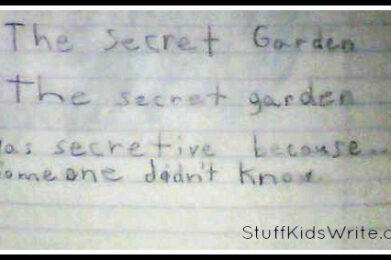 The Secret Garden
The secret garden
as secretive because...
omeone didn't know
StuffKidsWrite.c